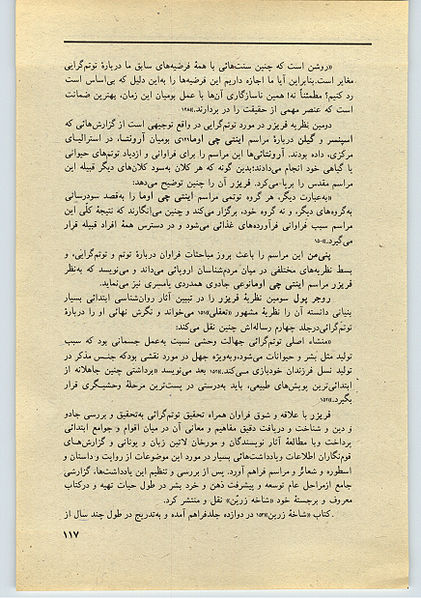 «روشن است که چنین سنت‌هائی با همهٔ فرضیه‌های سابق ما دربارهٔ توتم‌گرایی
مغایر است. بنابراین آیا ما اجازه داریم این فرضیه‌ها را به‌این دلیل که بی‌اساس است
رد کنیم؟ مطمئناً نه! همین ناسازگاری آن‌ها با عمل بومیان این زمان، بهترین ضمانت
است که عنصر مهمی از حقیقت را در بردارند.
دومین نظریه فریزر در مورد توتم‌گرایی در واقع توجیهی است از گزارش‌هائی که
اسپنسر و گیلن دربارهٔ مراسم اینتی چی اوما بومیان آرونتا، در استرالیای
مرکزی، داده بودند. آرونتائی‌ها این مراسم را برای فراوانی و ازدیاد توتم‌های حیوانی
یا گیاهی خود انجام می‌دادند؛ بدین گونه که هر کلان به‌سود کلان‌های دیگر قبیله این
مراسم مقدس را برپا می‌کرد. فریزر آن را چنین توضیح می‌دهد:
«به‌عبارت دیگر، هر گروه توتمی مراسم اینتی چی اوما را به‌قصد سودرسانی
به‌گروه‌های دیگر، و نه گروه خود، برگزار می‌کند و چنین می‌انگارند که نتیجهٔ کلّی این
مراسم سبب فراوانی فرآورده‌های غذائی می‌شود و در دسترس همهٔ افراد قبیله قرار
می‌گیرد.
پنی‌من این مراسم را باعث بروز مباحثات فراوان دربارهٔ توتم و توتم‌گرایی، و
بسط نظریه‌های مختلفی در میان مردم‌شناسان اروپائی می‌داند و می‌نویسد که به‌نظر
فریزر مراسم اینتی چی اوما نوعی جادوی همدردی یامسری نیز می‌نماید.
روجر پول سومین نظریهٔ فریزر را در تبیین آثار روان‌شناسی ابتدائی بسیار
بنیانی دانسته آن را نظریهٔ مشهور «تعقلی» می‌خواند و نگرش نهائی او را دربارهٔ
توتم‌گرائی درجلد چهارم رساله‌اش چنین نقل می‌کند:
«منشاء اصلی توتم‌گرائی جهالت وحشی نسبت به‌عمل جسمانی بود که سبب
تولید مثل بشر و حیوانات می‌شود، وبه‌ویژه جهل در مورد نقشی بودکه جنس مذکر در
تولید نسل فرزندان خودبازی می‌کند. بعد می‌نویسد «برداشتی چنین جاهلانه از
ابتدائی‌ترین پویش‌های طبیعی، باید به‌درستی در پست‌ترین مرحلهٔ وحشیگری قرار
بگیرد.
فریزر با علاقه و شوق فراوان همراه تحقیق توتم‌گرائی به‌تحقیق و بررسی جادو
و دین و شناخت و دریافت دقیق مفاهیم و معانی آن در میان اقوام و جوامع ابتدائی
پرداخت وبا مطالعهٔ آثار نویسندگان و مورخان لاتین زبان و یونانی و گزارش‌های
قوم‌نگاران اطلاعات ویادداشت‌هائی بسیار در مورد این موضوعات از روایت و داستان و
اسطوره و شعائر و مراسم فراهم آورد. پس از بررسی و تنظیم این یادداشت‌ها، گزارشی
جامع ازمراحل عام توسعه و پیشرفت ذهن و خرد بشر در طول حیات تهیه و درکتاب
معروف و برجستهٔ خود «شاخه زرّین» نقل و منتشر کرد.
کتاب «شاخهٔ زرین» در دوازده جلدفراهم آمده و به‌تدریج در طول چند سال از
۱۱۷